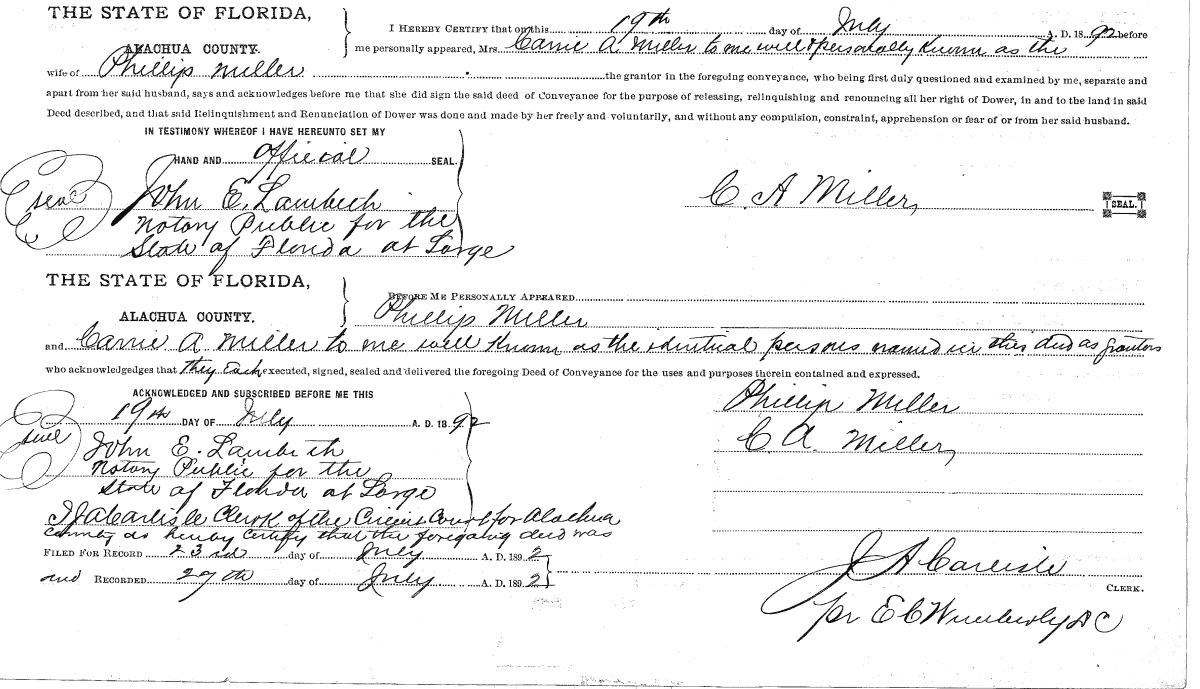 THE STATE OF FLORIDA,
ALACHUA COUNTY.
I HEREBY CERTIFY that on this 19th day of July A. D. 1892 before
me personally appeared, Mrs. Carrie A Miller to me well & personally known as the
wife of Phillip Miller the grantor in the foregoing conveyance, who being first duly questioned and examined by me, separate and
apart from her said husband, says and acknowledges before me that she did sign the said deed of Conveyance for the purpose of releasing, relinquishing and renouncing all her right of Dower, in and to the land in said
Deed described, and that said Relinquishment and Renunciation of Dower was done and made by her freely and voluntarily, and without any compulsion, constraint, apprehension or fear of or from her said husband.
IN TESTIMONY WHEREOF I HAVE HEREUNTO SET MY
HAND AND Official SEAL.
Seal John E. Lambeth
Notary Public for the
State of Florida at Large
C. A Miller, SEAL.
THE STATE OF FLORIDA,
ALACHUA COUNTY.
BEFORE ME PERSONALLY APPEARED
Phillip Miller
and Carrie A Miller to me well known as the identical persons named in this deed as grantors
who acknowledgedges that they Each executed, signed, sealed and delivered the foregoing Deed of Conveyance for the uses and purposes therein contained and expressed.
ACKNOWLEDGED AND SUBSCRIBED BEFORE ME THIS
19th DAY OF July A. D. 1892
Seal John E. Lambeth
Notary Public for the
State of Florida at Large
Phillip Miller
C. A. Miller,
I J A Carlisle Clerk of the Circuit Court for Alachua
County do hereby certify that the foregoing deed was
FILED FOR RECORD 23rd day of July A. D. 1892
and RECORDED 27th day of July A. D. 1892
J A Carlisle
CLERK.
pr E C Wimberly D C